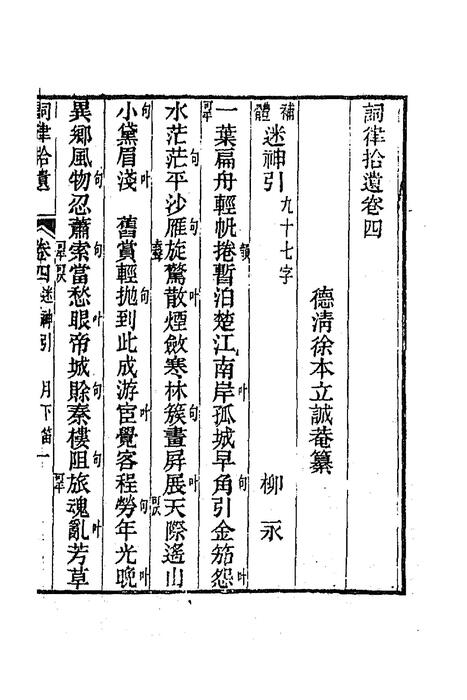 詞律拾遺卷四
德清徐本立誠菴纂
補體迷神引九十七字 柳永
一葉扁舟輕帆捲韻暫泊楚江南岸叶孤城早角句引金笳怨叶
水茫茫句平沙雁句旋驚散叶煙斂寒林簇句畫屏展叶天際遙山
小句黛眉淺叶 舊賞輕拋句到此成游宦叶覺客程勞句年光晚叶
異鄉風物句忍蕭索當愁眼叶帝城賒句秦樓阻句旅魂亂叶芳草
詞律拾遺 卷四 迷神引 月下笛 一